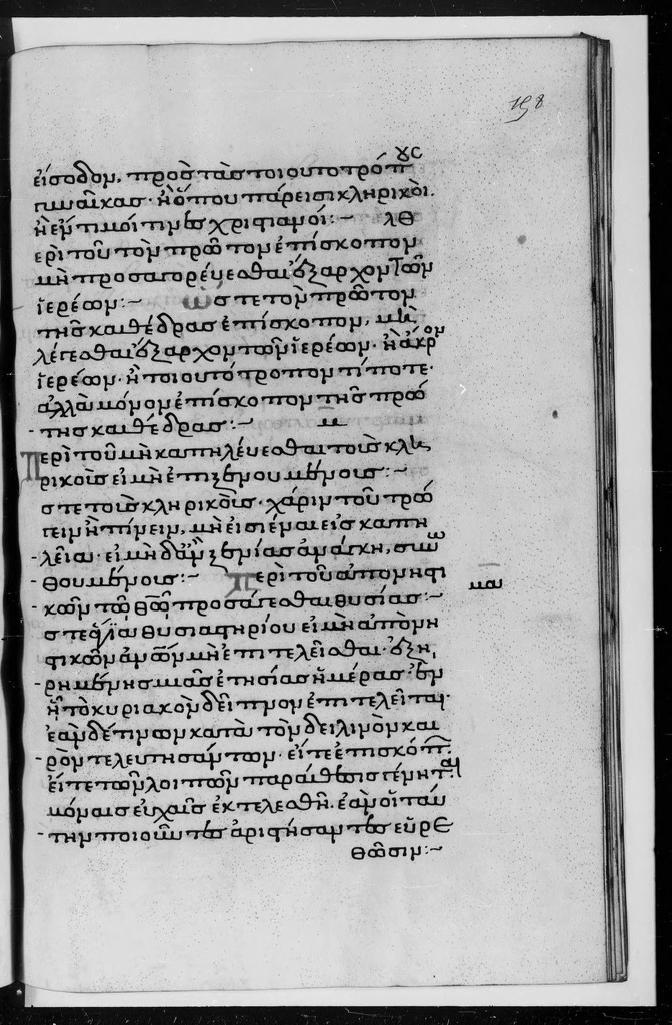 198
εἴσοδον. πρὸς τὰς τοιουτοτρόπ
ους
γυναῖκας. ἢ ὅπου πάρεισι κληρικοὶ.
ἢ ἔντιμοί τινες χριστιανοί:~ λθ
ερὶ τοῦ τὸν πρῶτον ἐπίσκοπον
μὴ προσαγορεύεσθαι ἔξαρχον τῶν
ἱερέων:~ ὥστε τὸν πρῶτον
τῆς καθέδρας ἐπίσκοπον, μὴ
λέγεσθαι ἔξαρχον τῶν ἱερέων. ἢ ἄκρον
ἱερέων. ἢ τοιουτότροπον τίποτε.
ἀλλὰ μόνον ἐπίσκοπον τῆς πρώ
της καθέδρας:~ μ
Περὶ τοῦ μὴ καπηλεύεσθαι τοῖς κλη
ρικοῖς εἰ μὴ ἐπιξενουμένοις:~
στε τοῖς κληρικοῖς. χάριν τοῦ τρώ
γειν ἢ πίνειν, μὴ εἰσιέναι εἰς καπη
λεῖα. εἰ μὴ δἂν ξενίας ἀνάγκη, συνω
θουμένοις:~ Περὶ τοῦ ἀπονηστι
κῶν τῷ θῶ προσάγεσθαι θυσίας:~
μα
στε ἅγια θυσιαστηρίου εἰ μὴ ἀπὸ νη
στικῶν ἀνῶν μὴ ἐπιτελεῖσθαι. ἐξῃ
ρημένης μιᾶς ἐτησίας ἡμέρας. ἐν
ᾗ τὸ κυριακὸν δεῖπνον ἐπιτελεῖται.
ἐὰν δέ τινων κατὰ τὸν δειλινὸν και
ρὸν τελευτησάντων. εἴτε ἐπισκόπ.
εἴτε τῶν λοιπῶν παραθεσις γένηται
μόναις εὐχαῖς ἐκτελεσθῇ. ἐὰν οἱ ταύ
την ποιοῦντες ἀριστήσαντες εὑρε
θῶσιν:~